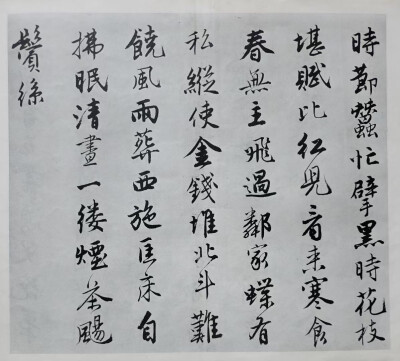 時節蠶忙擘黑時花枝
堪賦比紅兒看來寒食
春無主飛過鄰家蝶有
私縱使金錢堆北斗難
饒風雨葬西施匡床自
拂眠清晝一縷煙茶颺
鬢絲